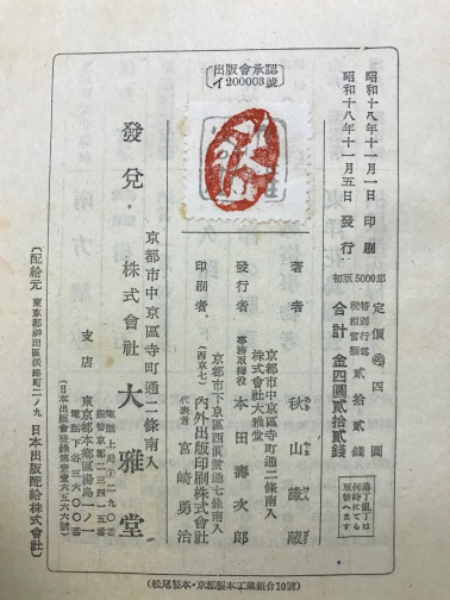 昭和十八年十一月一日 印刷
昭和十八年十一月五日 發行
初版 5000部
定價 四圓
特別行爲税相當額 貳拾貳錢
合計 金四圓貳拾貳錢
落丁亂丁は何時にても取替へます
出版會承認
イ200003號
著者 秋山謙藏
京都市中京區寺町通二條南入
株式會社大雅堂
發行者 專務取締役 本田壽次郎
京都市下京區西洞院通七條南入
印刷者 (西京七) 內外出版印刷株式會社
代表者 宮崎勇治
發兌・
京都市中京區寺町通二條南入
株式會社 大雅堂
電話上局③二一九〇番
振替京都二三四一五番
支店 東京都本鄕區湯島一ノ一
電話下谷三六〇〇番
(日本出版會登錄第壹壹六五六六號)
〔配給元 東京都神田區淡路町二ノ九 日本出版配給株式會社〕
(松尾製本・京都製本工業組合10號)